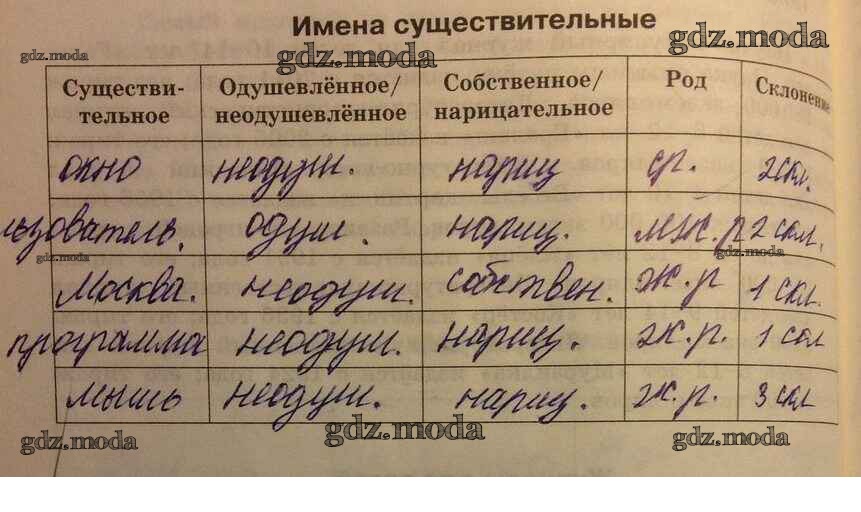 Имена существительные
gdz.moda gdz.moda gdz.moda
Существи-
тельное
Одушевлённое/
неодушевлённое
Собственное/
нарицательное
Род
Склонение
окно неодуш. нариц ср. 2 скл.
льзователь. одуш. нариц. мж.р 2 скл.
gdz.moda gdz.moda
Москва. неодуш. собствен. ж.р 1 скл.
программа неодуш. нариц. ж.р. 1 сол
мышь неодуш. нариц. ж.р. 3 скл
gdz.moda gdz.moda gdz.moda